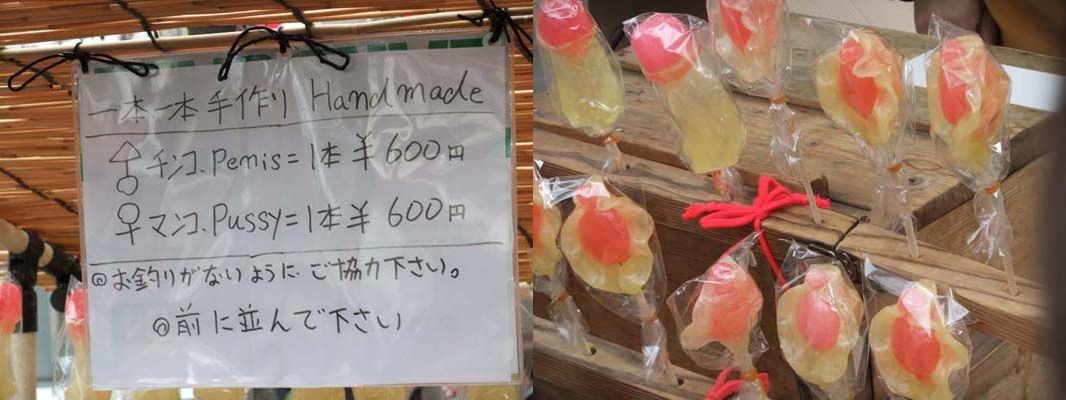 一本一本手作り Handmade
♂チンコ.Penis=1本¥600円
♀マンコ.Pussy=1本¥600円
◎お釣りがないようにご協力下さい。
◎前に並んで下さい